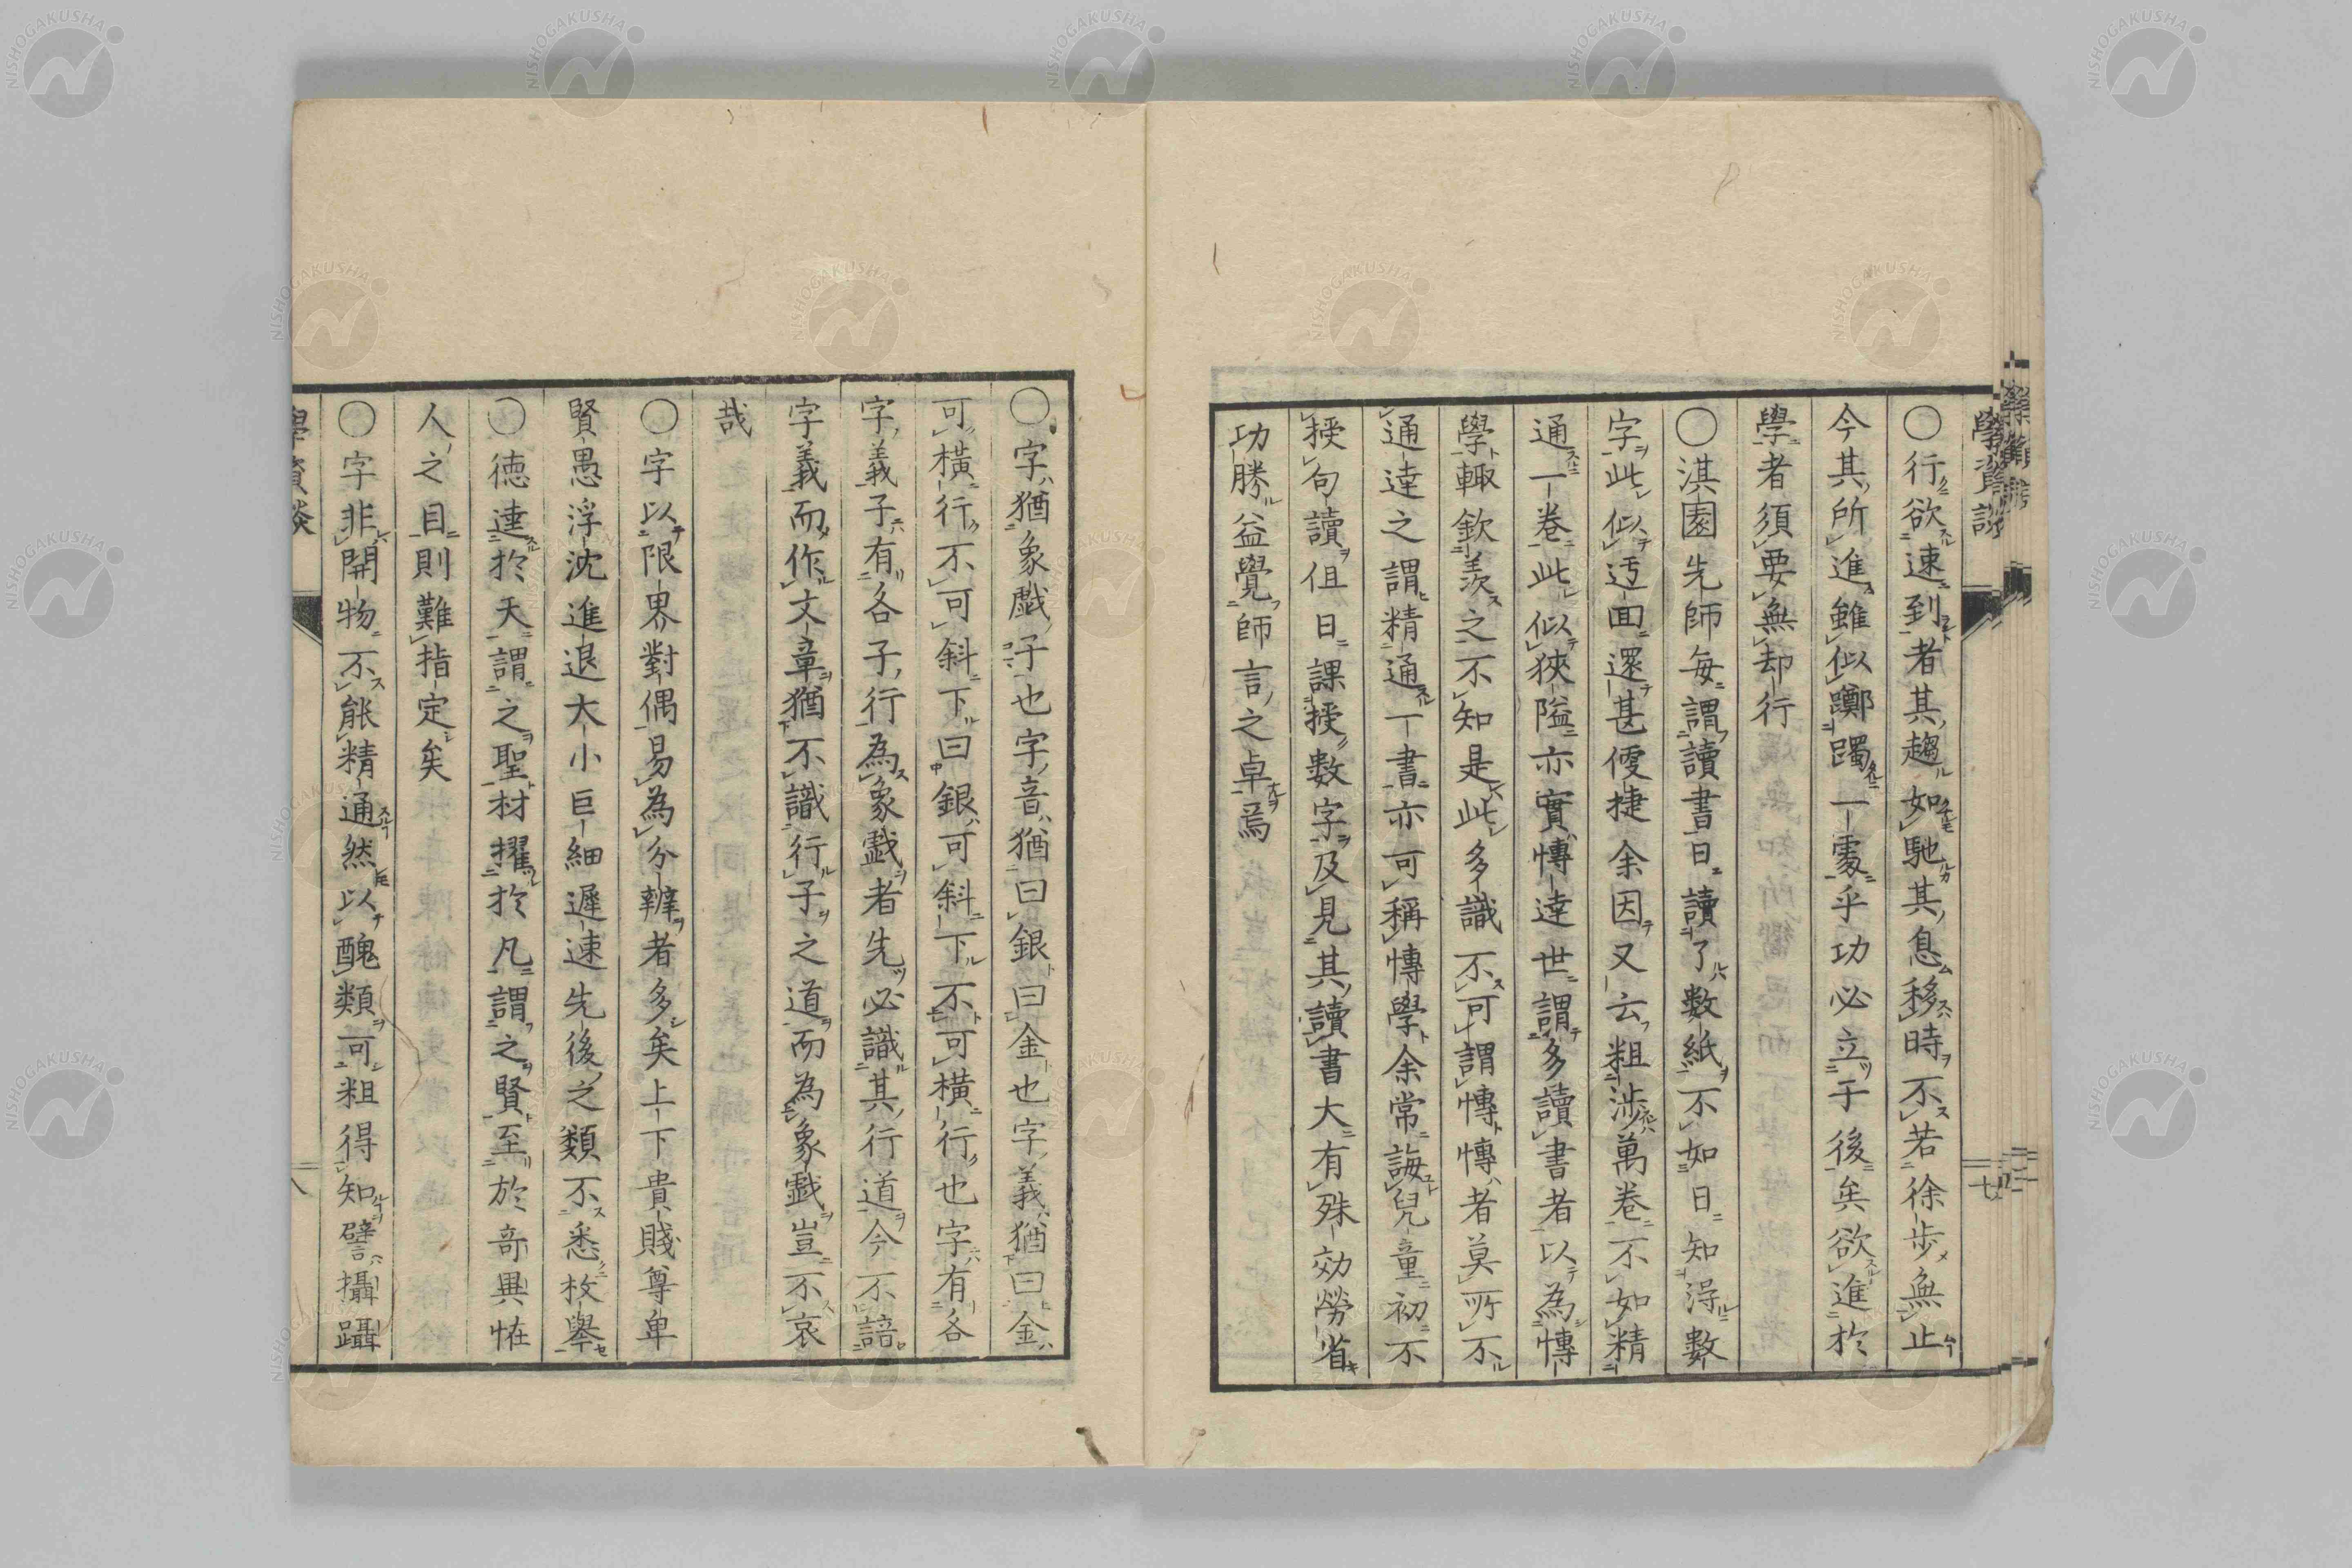 學資談
○行欲速到者其趨如馳其息移時不若徐歩無止
今其所進雖似躑躅一處乎功必立于後矣欲進於
學者須要無却行
○淇園先師毎謂讀書日讀了數紙不如日知得數
字此似迂囬還甚便捷余因又云粗渉萬卷不如精
通一卷此似狹隘亦實慱達世謂多讀書者以為慱
學輙欽羨之不知是此多識不可謂慱慱者莫所不
通達之謂精通一書亦可稱慱學余常誨兒童初不
授句讀伹日課授數字及見其讀書大有殊効勞省
功勝益覺師言之卓焉
七
○字猶象戯子也字音猶曰銀曰金也字義猶曰金
可橫行不可斜下曰銀可斜下不可橫行也字有各
字義子有各子行為象戱者先必識其行道今不諳
字義而作文章猶不識行子之道而為象戱豈不哀
哉
○字以限界對偶易為分辧者多矣上下貴賤尊卑
賢愚浮沈進退大小巨細遲速先後之類不悉枚擧
○徳達於天謂之聖材擢於凡謂之賢至於奇異恠
人之目則難指定矣
○字非開物不能精通然以醜類可粗得知譬攝躡
學資談
八
NISHOGAKUSHA